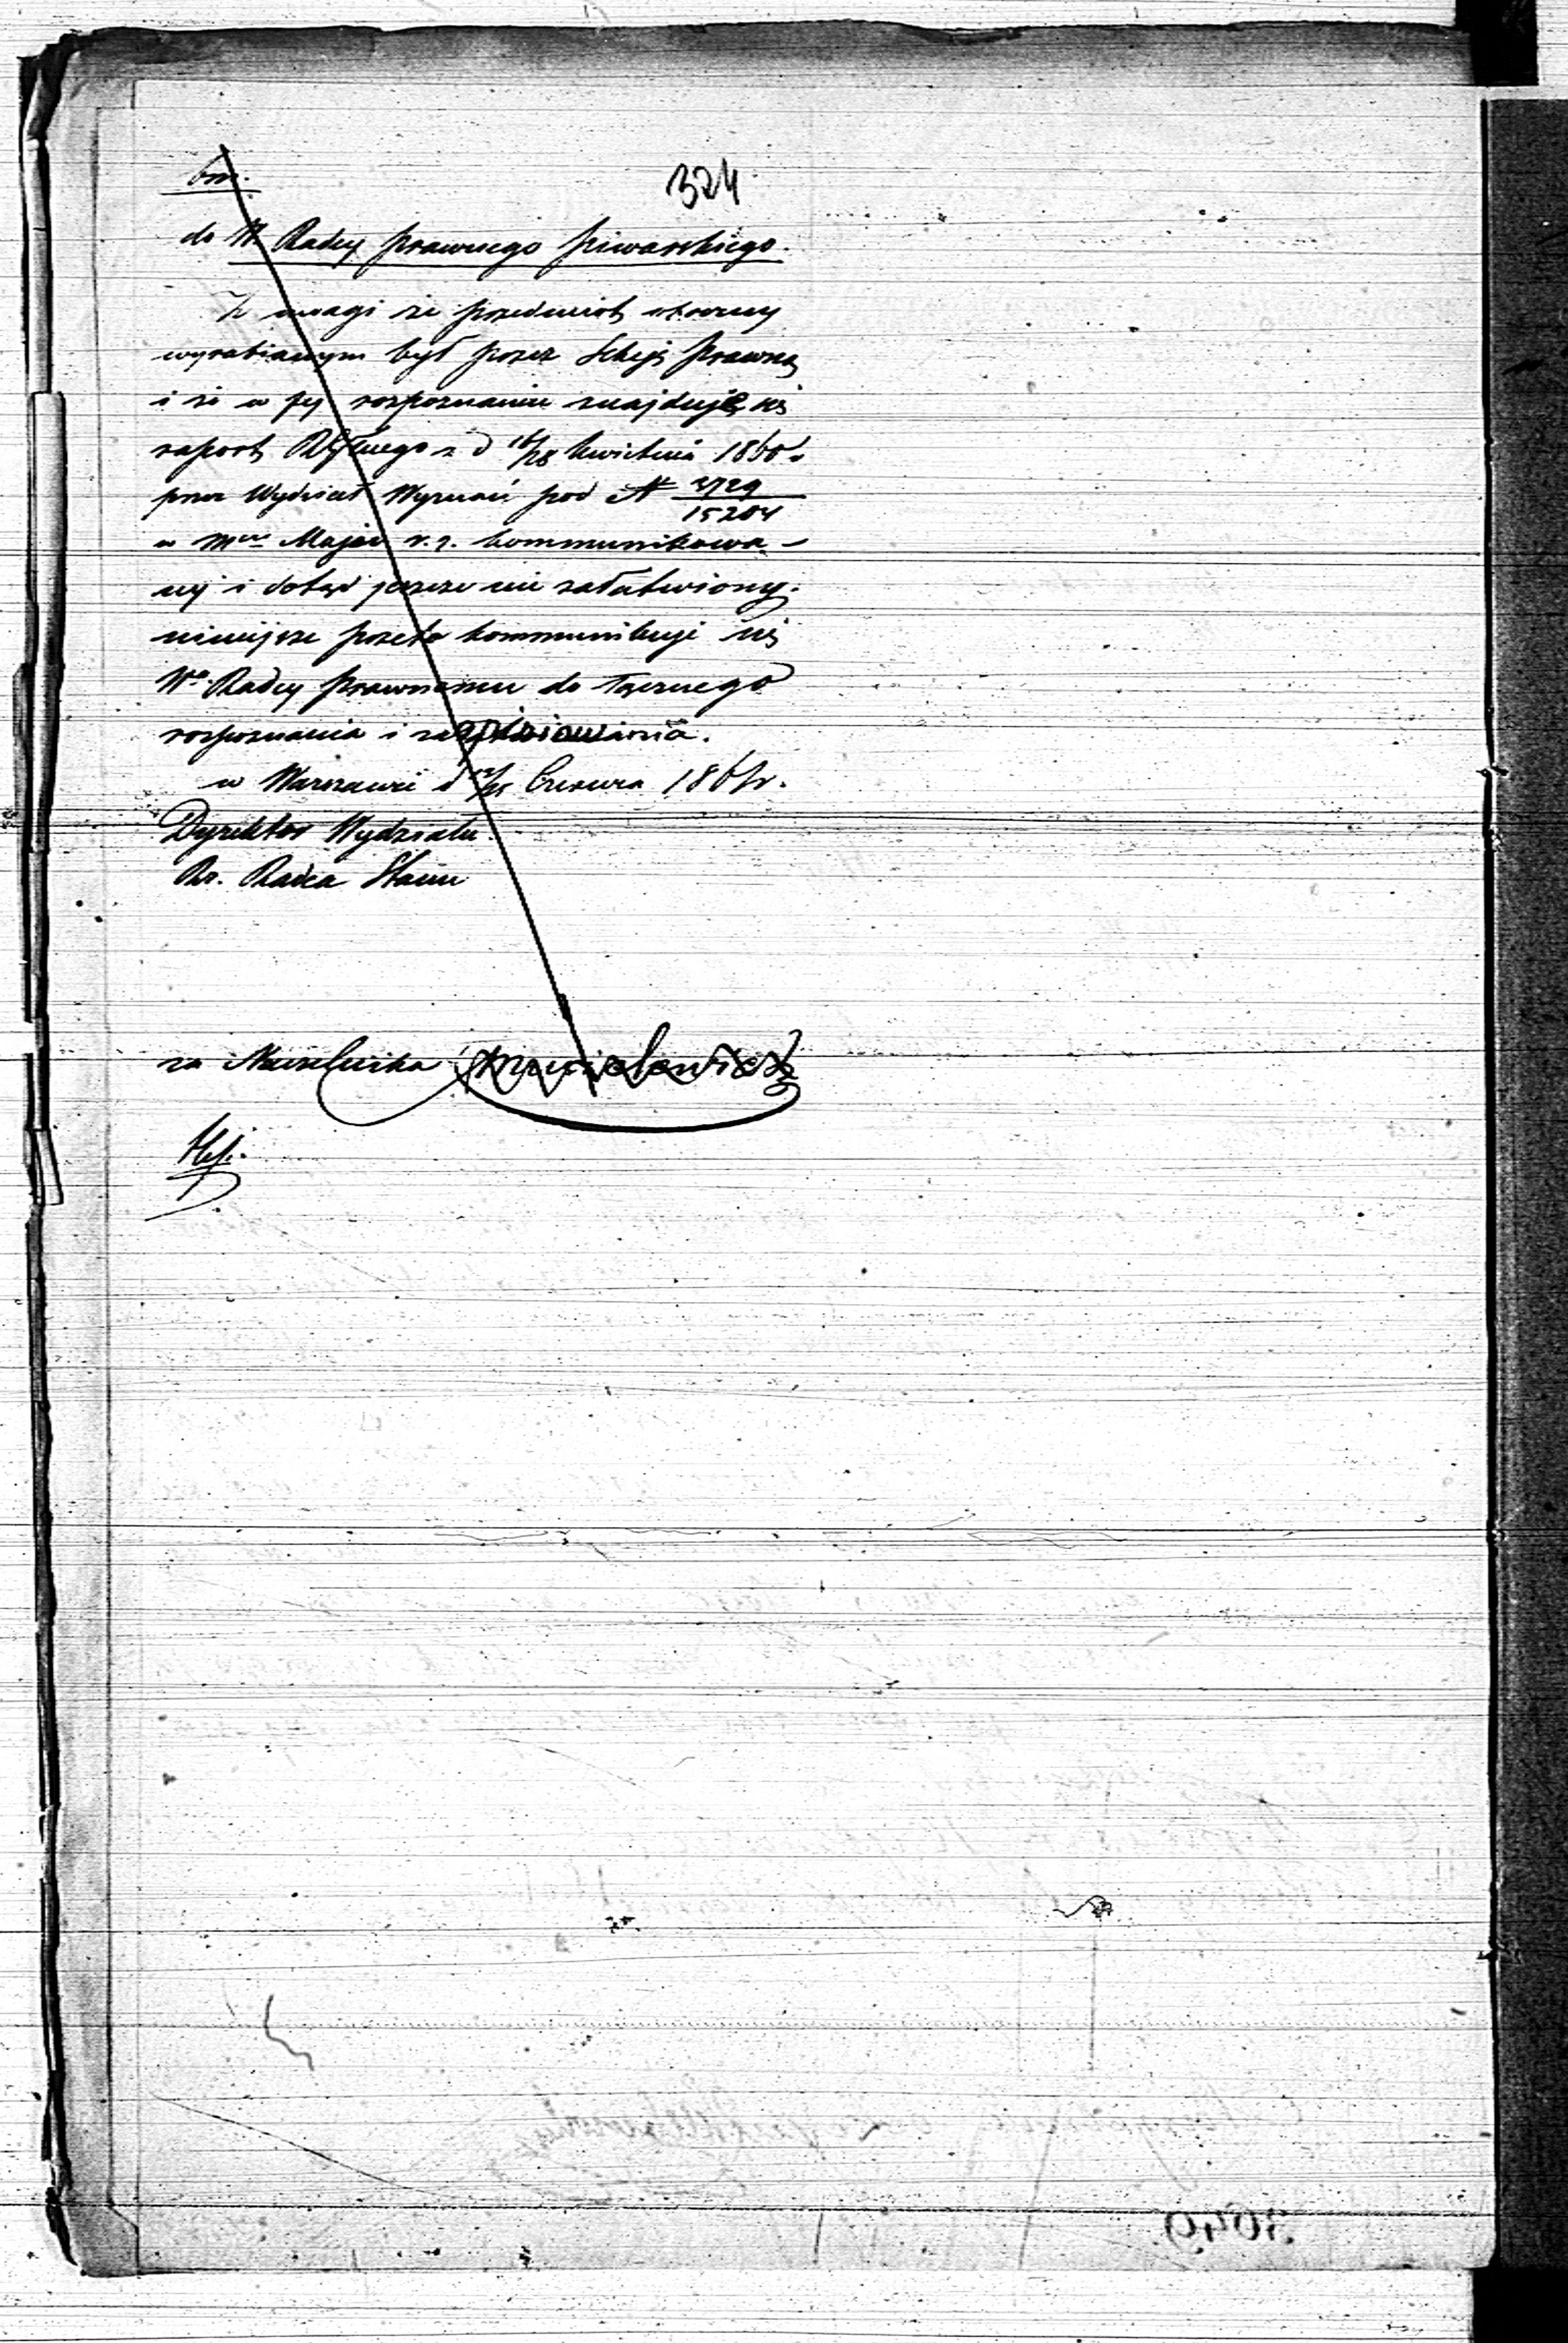 324
do W Radcy prawnego Piwarskiego.
Z uwagi że przedmiot
wyrabianym był przez Sekcję Prawną
i że w jej rozpoznaniu znajduje się
raport z d 16/28 kwietnia 1860 r.
przez Wydział Wyznań pod N 3729/15204
w mcu Maju r. z. kommunikowa-
ny i dotąd jeszcze nie załatwiony.
niniejsze przeto kommunikuje się
Wu Radcy Prawnemu do łącznego
rozpoznania i
w Warszawie d Czerwca 1861 r.
Dyrektor Wydziału.
Rz. Radca Stanu
za Naczelnika